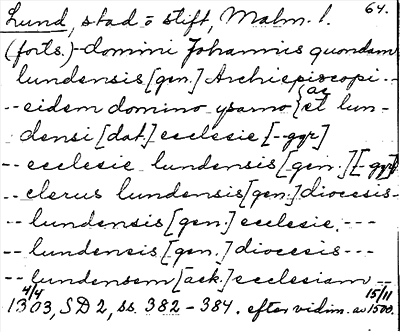 Lund, stad o stift, Malm. l. 64.
(forts.) - domini Johannis quondam
lundensis [gen.] Archiepiscopi --
-- eidem domino ysarno { ac et lun-
densi [dat.] ecclesie [-ggr]
-- ecclesie lundensis [gen.] [-ggr]
-- clerus lundensis [gen.] diocesis -
-- lundensis [gen.] ecclesie ---
-- lundensis [gen.] diocesis ---
-- lundensem [ack.] ecclesiam --
4/4 1303, SD 2, ss. 382-384. efter vidim. av 15/11 1500.